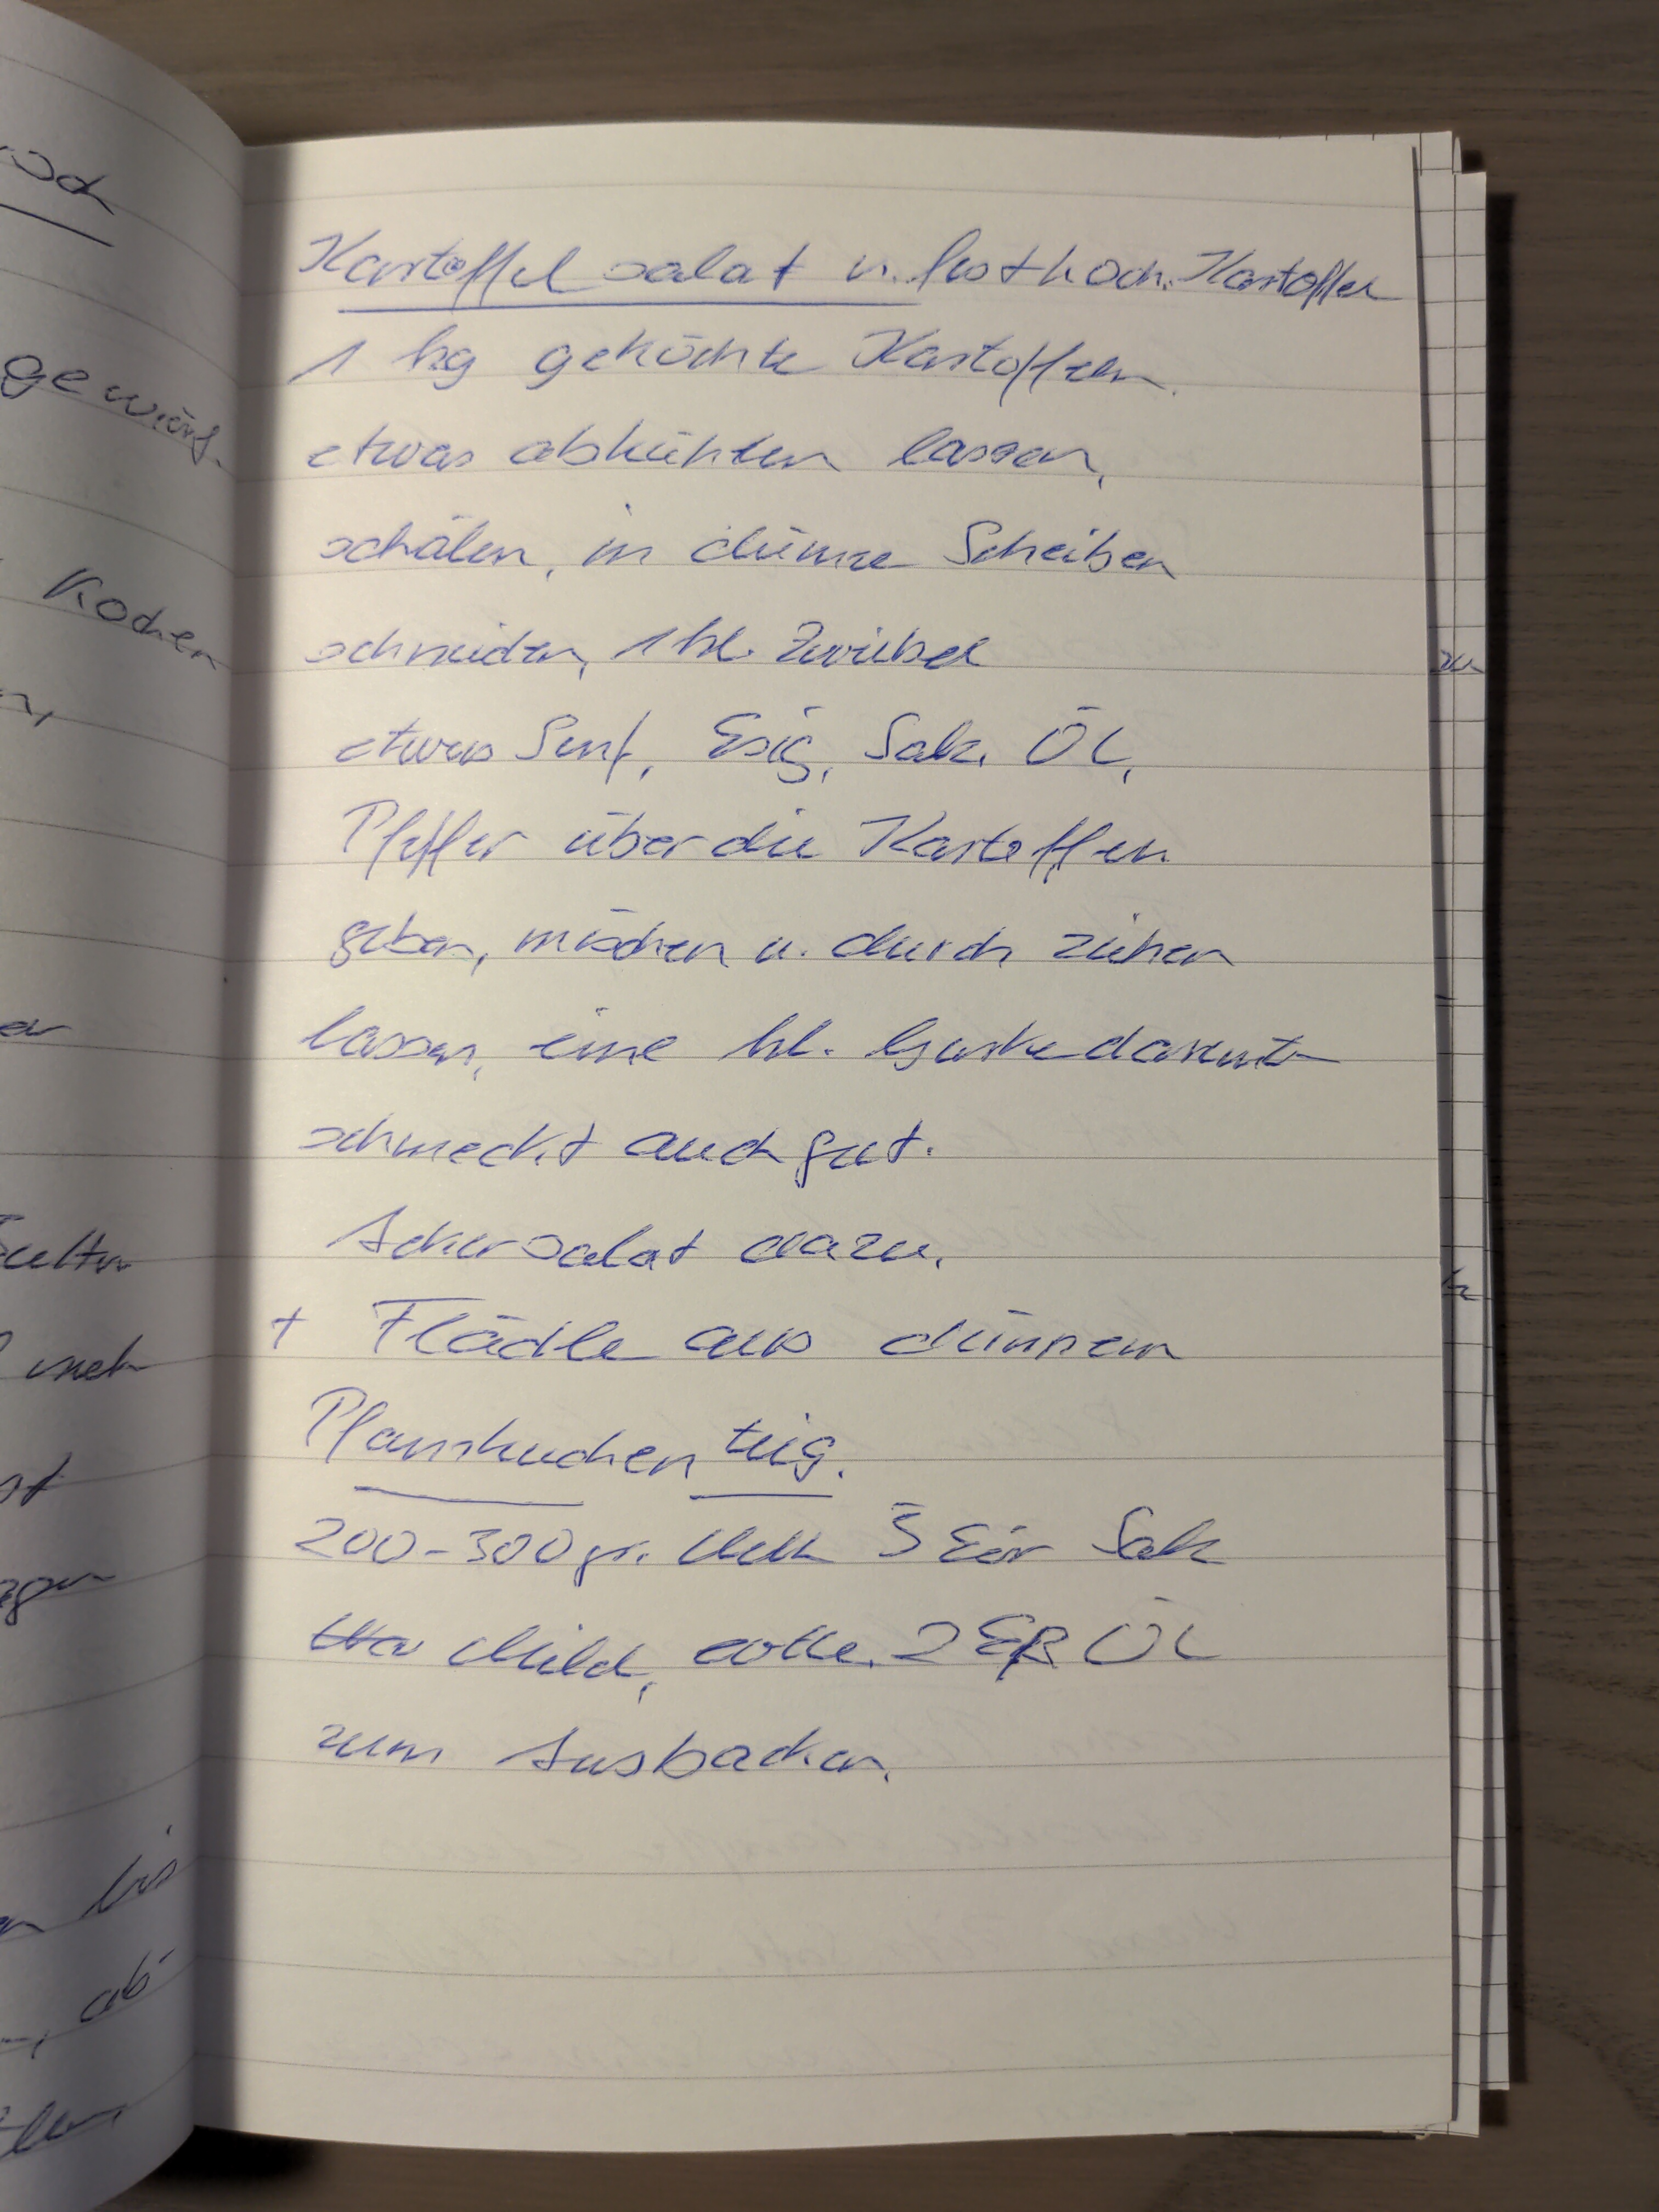 och
gewürf.
Kochen
er
meh
st
bis
ab
Kartoffelsalat v. festkoch. Kartoffel
1 kg gekochte Kartoffeln
etwas abkühlen lassen,
schälen, in dünne Scheiben
schneiden, 1 kl. Zwiebel
etwas Senf, Esig, Salz, ÖL,
Pfeffer über die Kartoffeln
geben, mischen u. durch ziehen
lassen, eine kl. Gurke darunter
schmeckt auch gut.
Ackersalat dazu.
+ Flädle aus dünnem
Pfannkuchen teig.
200-300 gr. Mehl 5 Eier Salz
Milch, evtl. 2 EßL ÖL
zum Ausbacken.